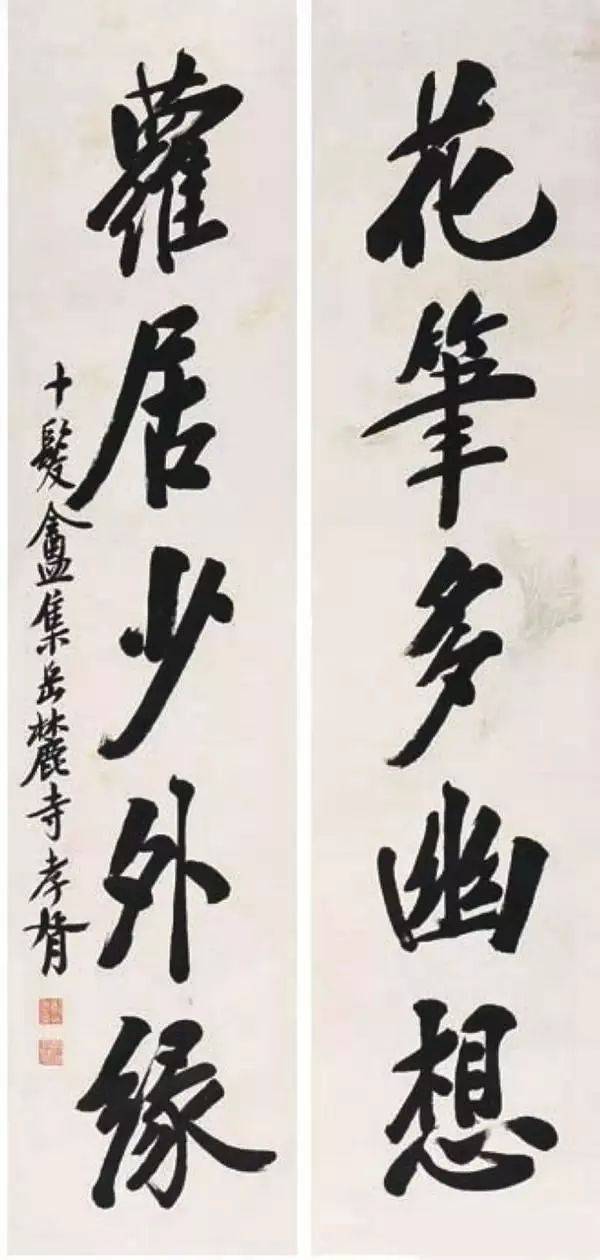 花筆多幽想
蘿居少外緣
十髮盦集岳麓寺 孝胥